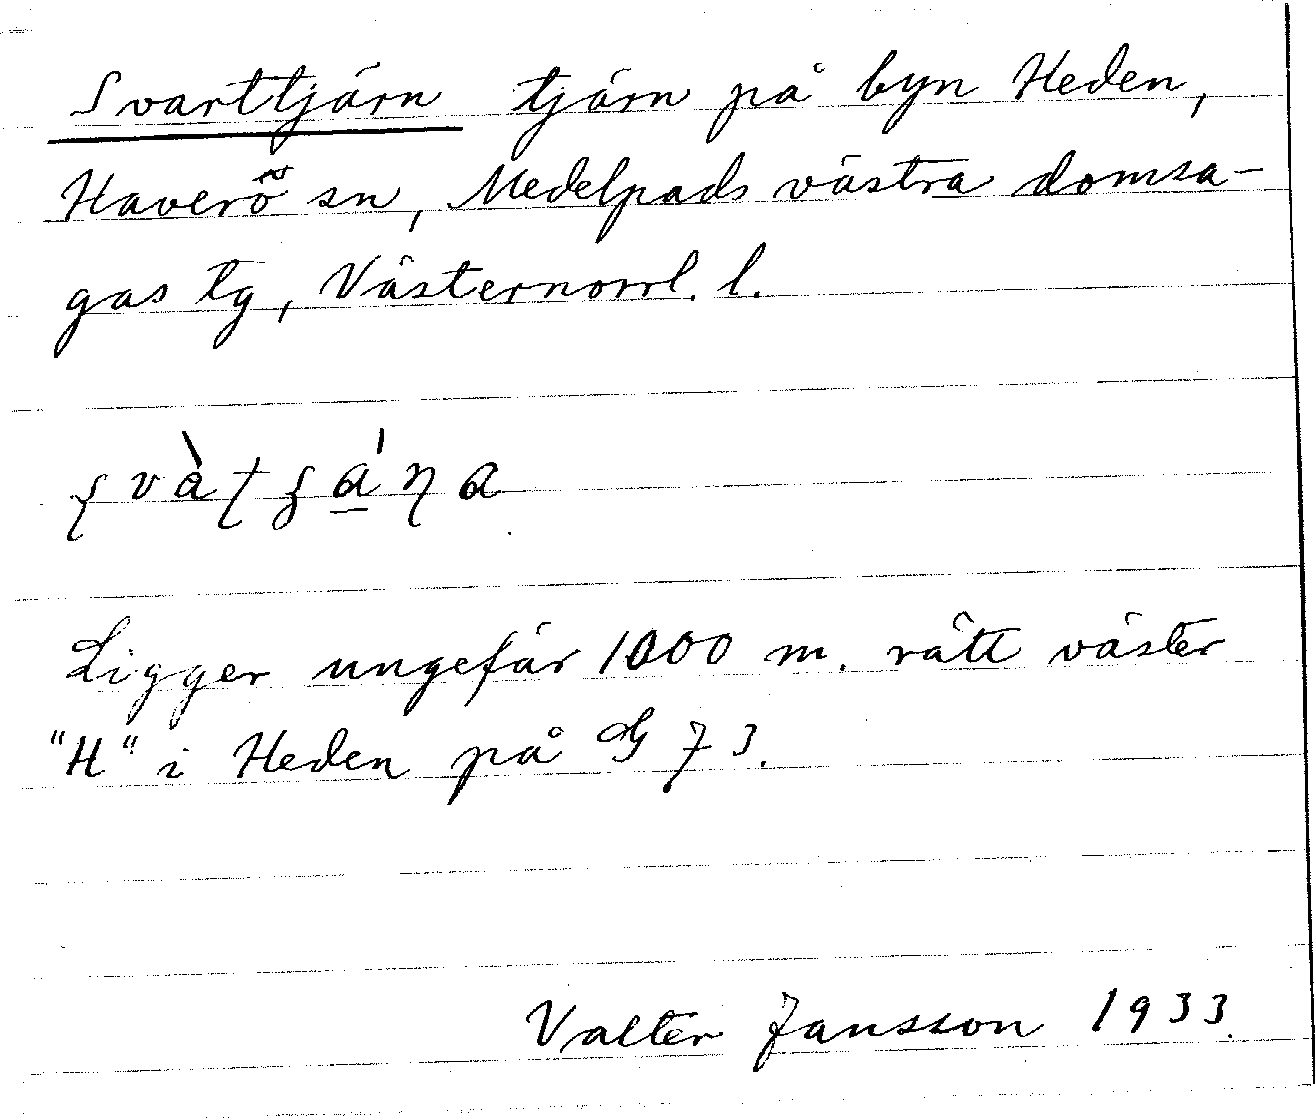 Svarttjärn tjärn på byn Heden,
Haverö sn, Medelpads västra domsa-
gas tg, Västernorrl. l.
Ligger ungefär 1000 m. rätt väster
"H" i Heden på G 73.
Valter Jansson 1933.